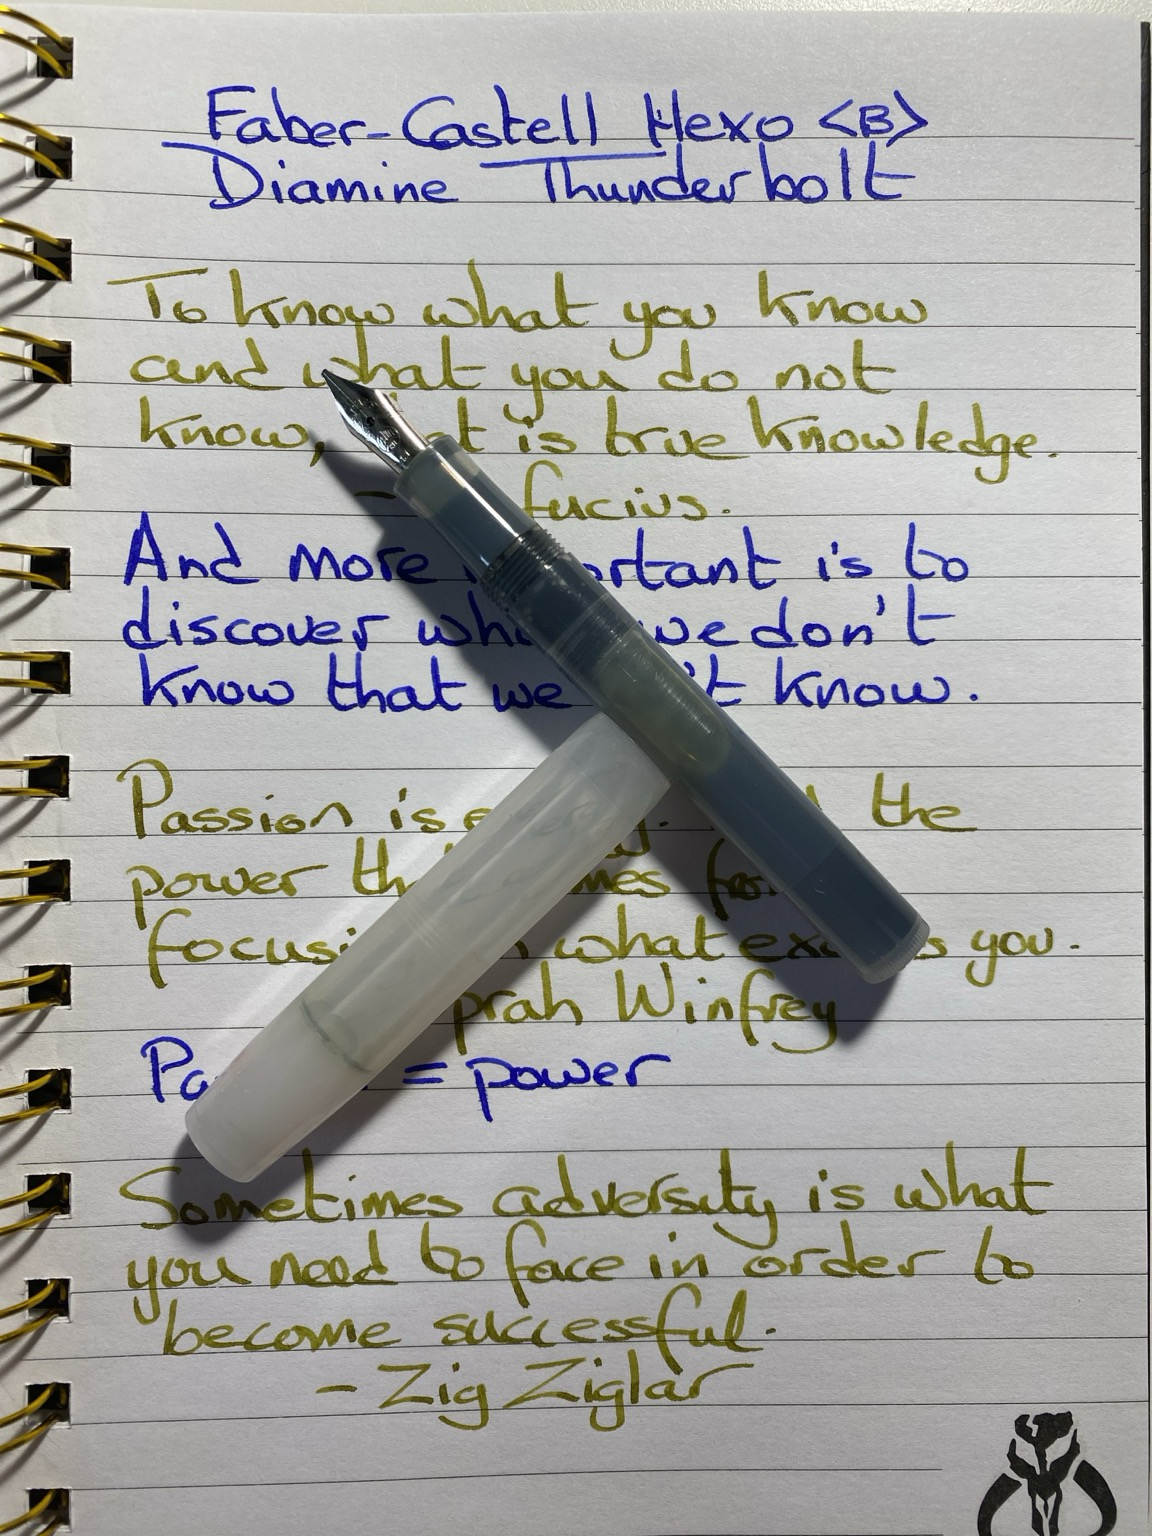 Faber-Castell Hexo <B>
Diamine Thunderbolt
To know what you know
and what you do not
know, is true knowledge.
-
And more is to
discover we don't
know that we know.
Passion is the
power
focusing what you.
Winfrey
= power
Sometimes adversity is what
you need to face in order to
become successful.
- Zig Ziglar